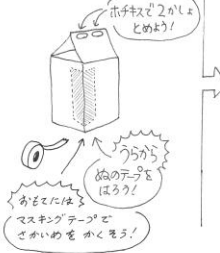 ホチキスで2かしょ
とめよう!
うらから
ぬのテープを
はろう!
おもてには
マスキングテープで
さかいめをかくそう!